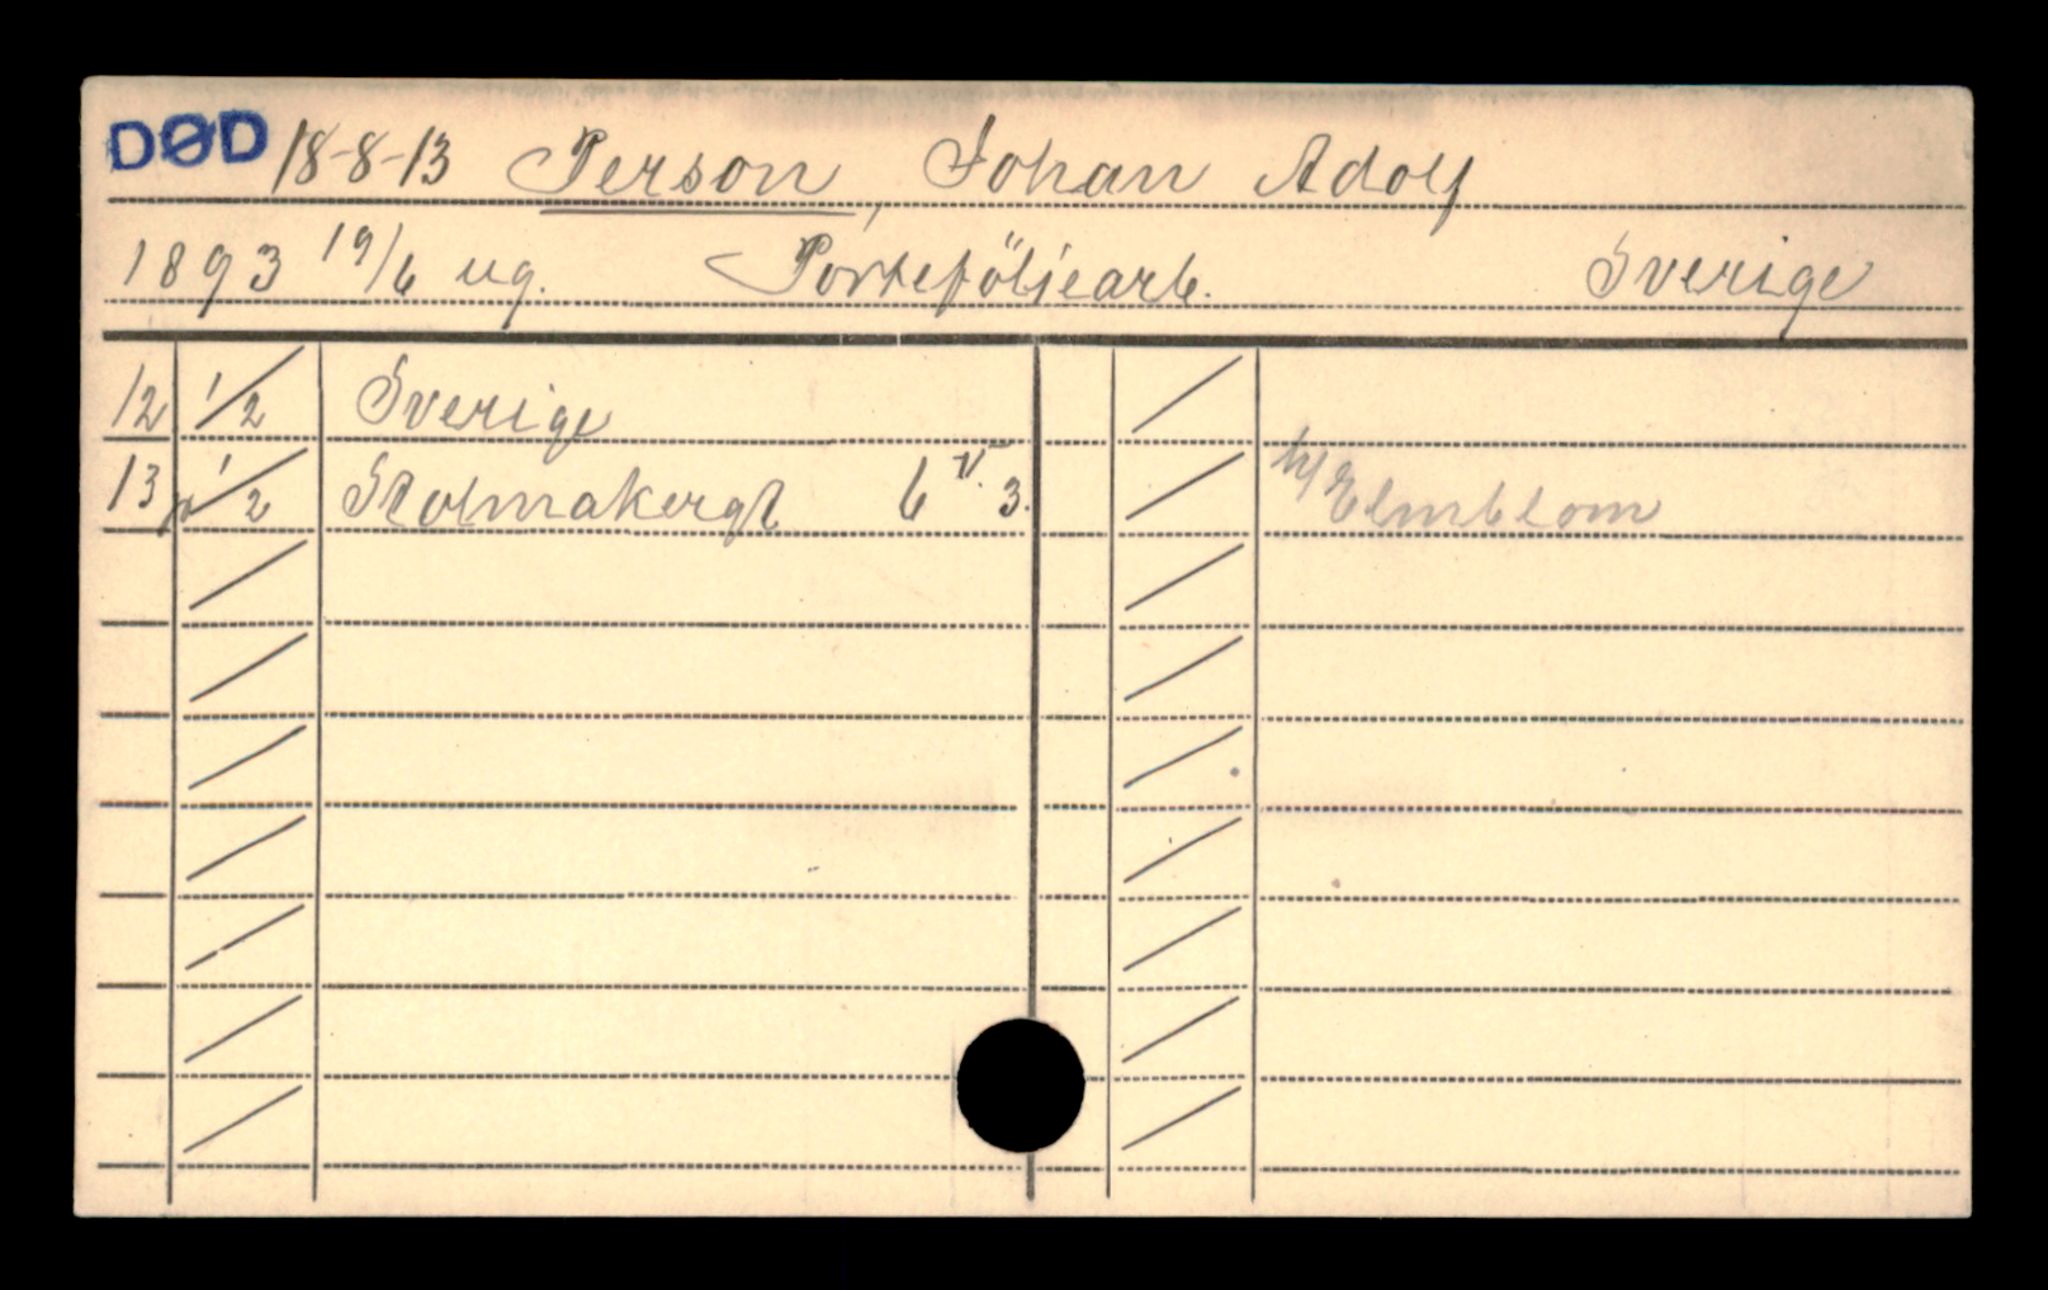 DØD 18-8-13 Person, Johan Adolf
1893 19/6 ug. Porteföljearb. Sverige
12 1/2 Sverige
13 1/2 Stolmakergt 6 V. 3. h/ Elmblom